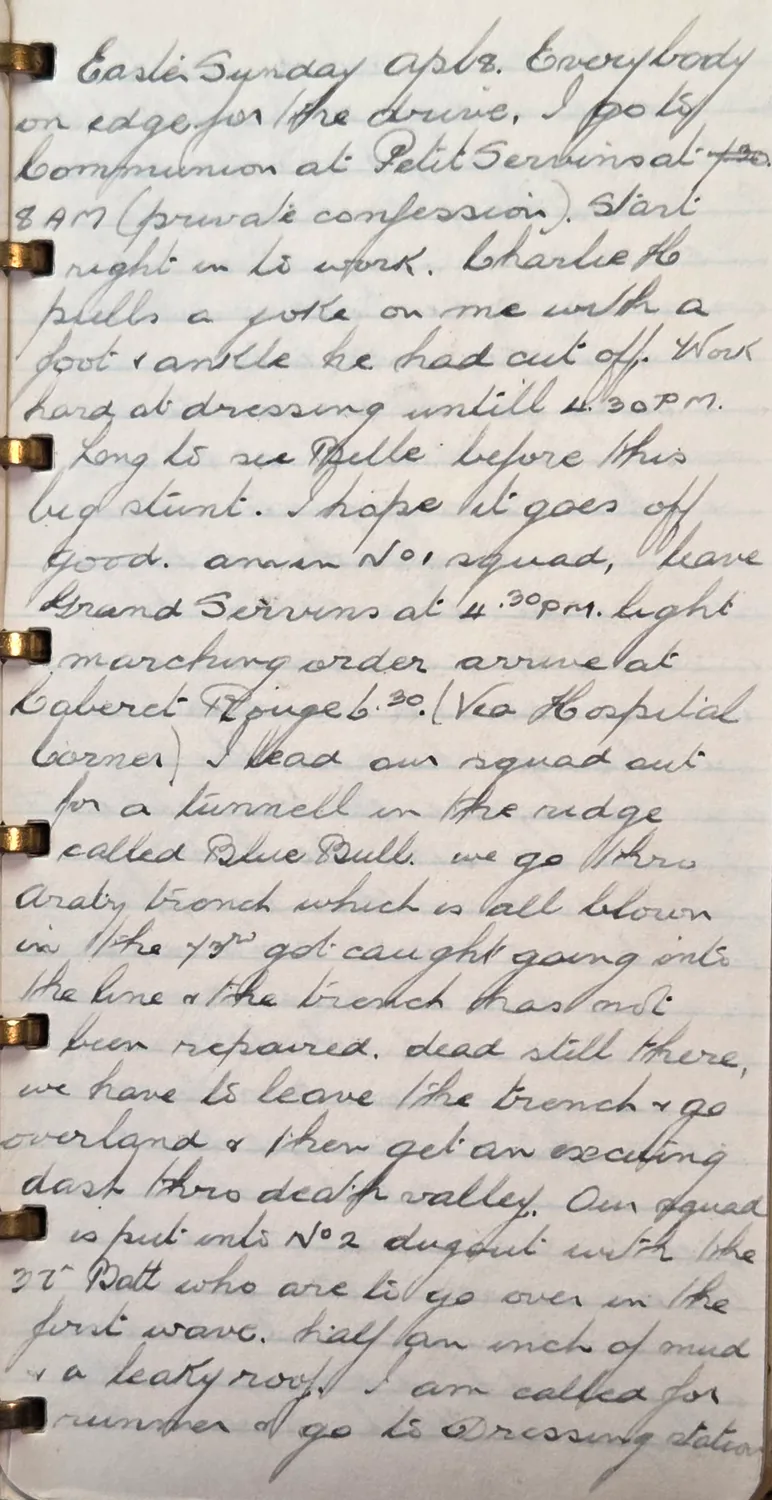 Easter Sunday Apl 8. Everybody
on edge for the drive, I go to
Communion at Petit Servins at 7.30.
8 AM (private confession). Start
right in to work. Charlie H
pulls a joke on me with a
foot & ankle he had cut off. Work
hard at dressing untill 4.30 PM.
Long to see Belle before this
big stunt. I hope it goes off
good. am in No 1 squad, leave
Grand Servins at 4.30 PM. light
marching order arrive at
Caberet Rouge 6.30. (Via Hospital
Corner) I lead our squad out
for a tunnell in the ridge
called Blue Bull. we go thro
Araby trench which is all blown
in the 73rd got caught going into
the line & the trench has not
been repaired. dead still there,
we have to leave the trench & go
overland & then get an exciting
dash thro death valley. Our squad
is put into No 2 dugout with the
Batt who are to go over in the
first wave. half an inch of mud
& a leaky roof. I am called for
runner & go to Dressing station